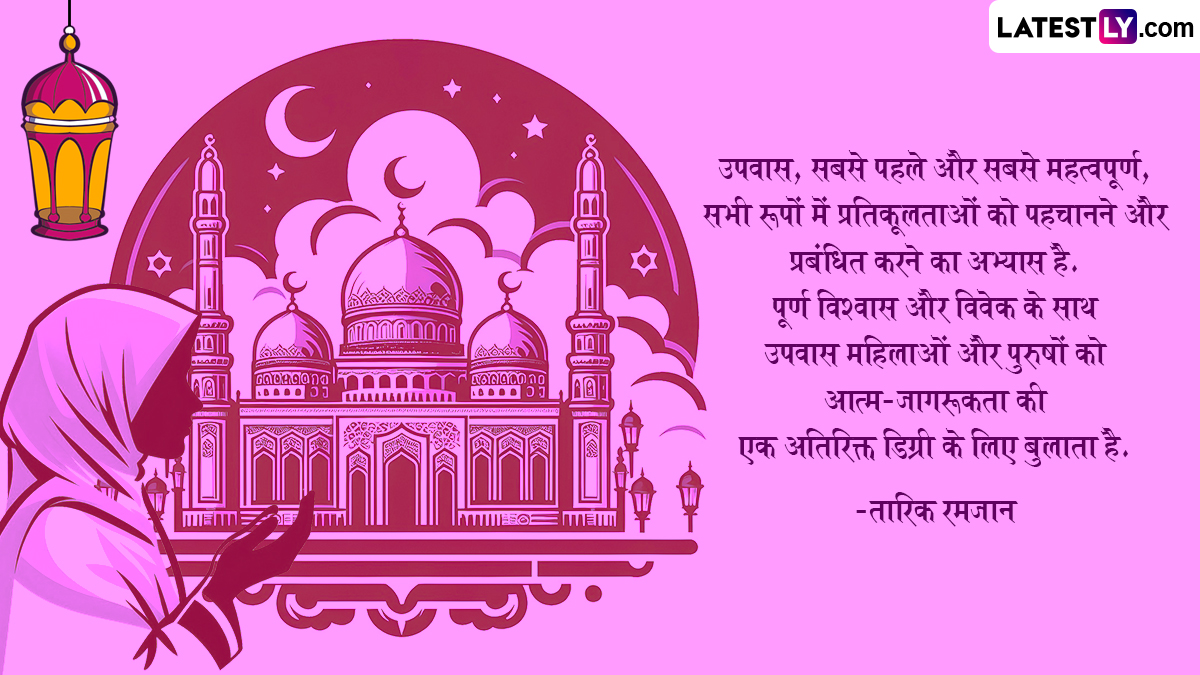 LATESTLY.com
उपवास, सबसे पहले और सबसे महत्वपूर्ण,
सभी रूपों में प्रतिकूलताओं को पहचानने और
प्रबंधित करने का अभ्यास है.
पूर्ण विश्वास और विवेक के साथ
उपवास महिलाओं और पुरुषों को
आत्म-जागरूकता की
एक अतिरिक्त डिग्री के लिए बुलाता है.
-तारिक रमजान